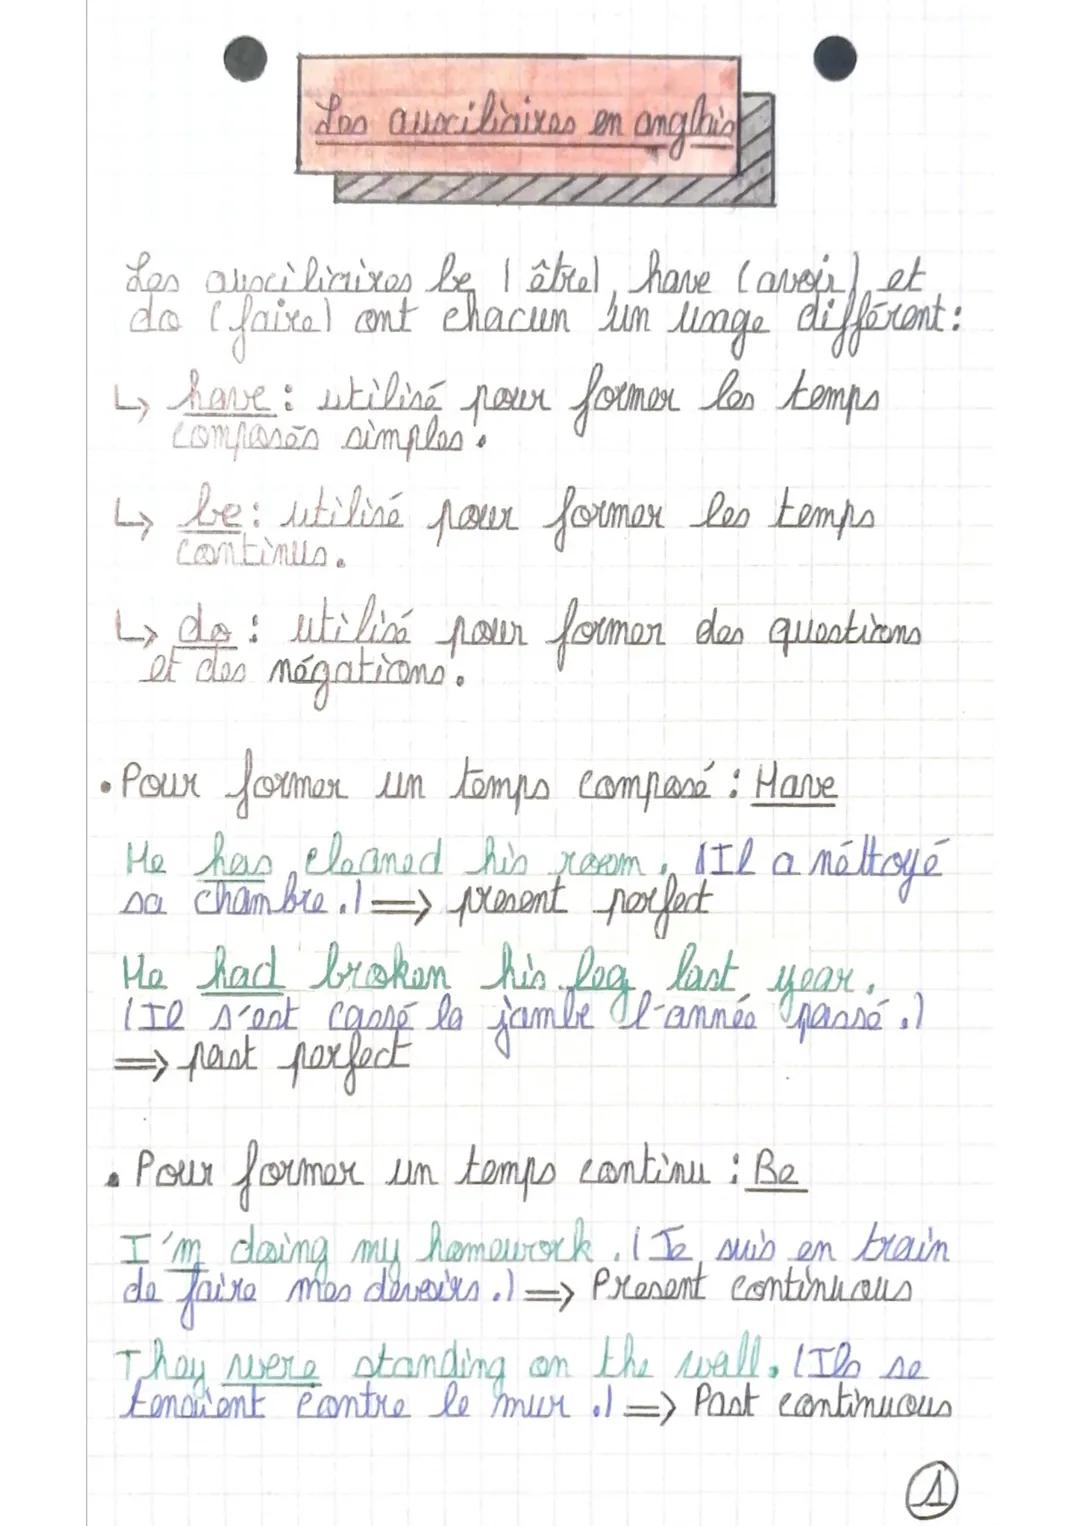 Les auxiliaires en anglais
Les auxiliaires be (être), have (avoir) et
do (faire) ont chacun un usage différent :
↳ have : utilisé pour former les temps
composés simples.
↳ be : utilisé pour former les temps
continus.
↳ do : utilisé pour former des questions
et des négations.
• Pour former un temps composé : Have
He has cleaned his room. (Il a néttoyé
sa chambre.) => present perfect
He had broken his leg last year.
(Il s'est cassé la jambe l'année passé.)
=> past perfect
• Pour former un temps continu : Be
I'm doing my homework. (Je suis en train
de faire mes devoirs.) => Present continuous
They were standing on the wall. (Ils se
tenaient contre le mur.) => Past continuous
1